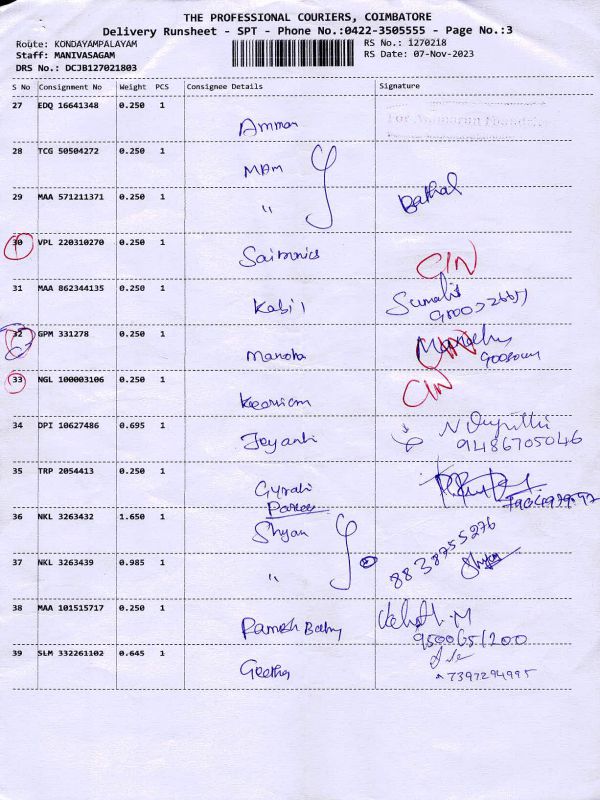 THE PROFESSIONAL COURIERS, COIMBATORE
Delivery Runsheet - SPT - Phone No.:0422-3505555 - Page No.:3
Route: KONDAYAMPALAYAM RS No.: 1270218
Staff: MANIVASAGAM RS Date: 07-Nov-2023
DRS No.: DCJB127021803
S No Consignment No Weight PCS Consignee Details Signature
27 EDQ 16641348 0.250 1 Amman
28 TCG 50504272 0.250 1 MAM
29 MAA 571211371 0.250 1 "
30 VPL 220310270 0.250 1 CIN
31 MAA 862344135 0.250 1 Kabil
32 GPM 331278 0.250 1 Manoha
33 NGL 100003106 0.250 1 CIN
34 DPI 10627486 0.695 1 Jeyanti
9486705046
35 TRP 2054413 0.250 1
36 NKL 3263432 1.650 1 Shyan 8838755276
37 NKL 3263439 0.985 1 " Shyam
38 MAA 101515717 0.250 1 Ramesh Babu
9500651200
39 SLM 332261102 0.645 1 Geetha
7397294995